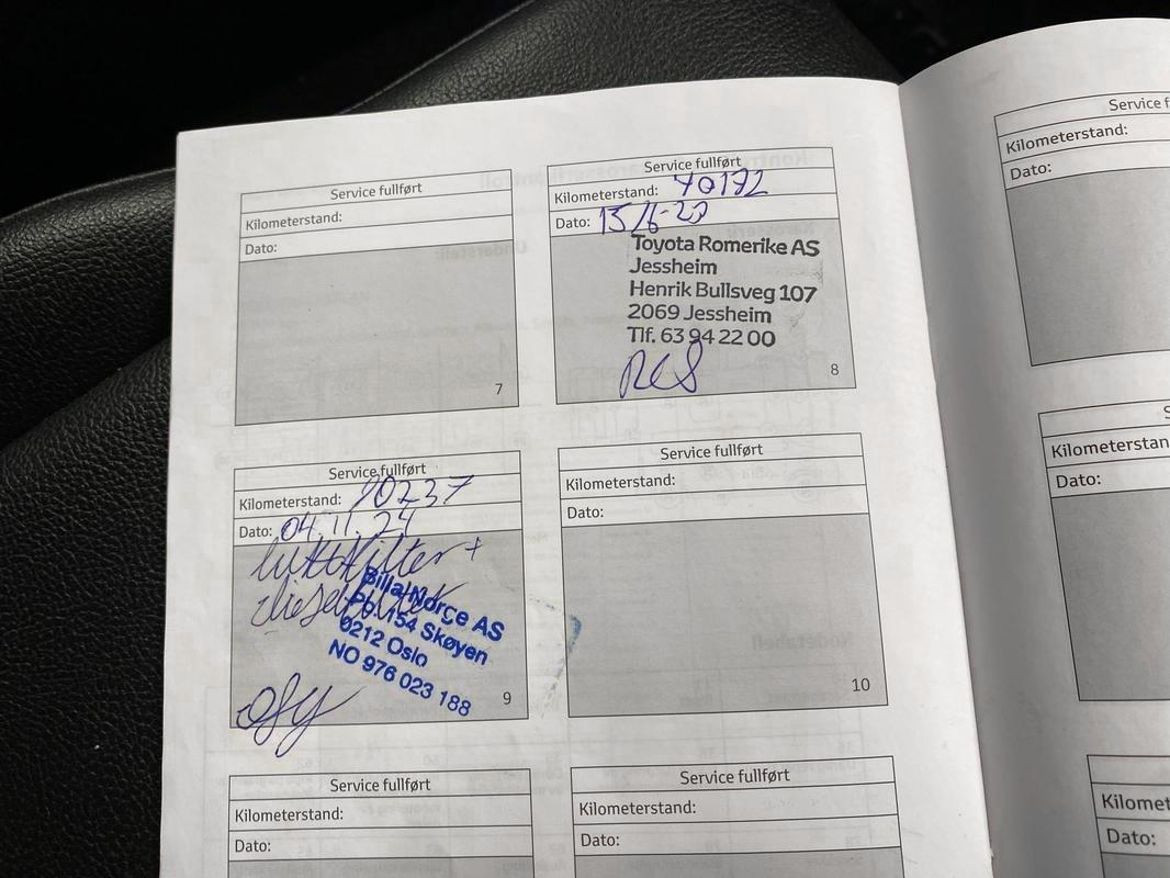 Service fullført
Kilometerstand:
Dato:
7
Service fullført
Kilometerstand: 70172
Dato: 15/6-20
Toyota Romerike AS
Jessheim
Henrik Bullsveg 107
2069 Jessheim
Tlf. 63 94 22 00
8
Service fullført
Kilometerstand: 90237
Dato: 04.11.24
luftfilter +
dieselfilter
Billa Norge AS
Pb. 154 Skøyen
0212 Oslo
NO 976 023 188
9
Service fullført
Kilometerstand:
Dato:
10
Service fullført
Kilometerstand:
Dato:
Service fullført
Kilometerstand:
Dato:
Service f
Kilometerstand:
Dato:
S
Kilometerstan
Dato:
Kilomet
Dato: